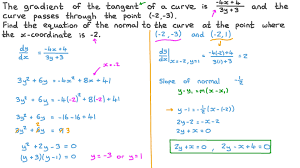 The gradient of the tangent of a curve is (-4x+4)/(3y+3) and the
curve passes through the point (-2,-3).
Find the equation of the normal to the curve at the point where
the x-coordinate is -2.
dy/dx = (-4x+4)/(3y+3)
x=-2
3y²+6y = -4x²+8x+41
3y²+6y = -4(-2)²+8(-2)+41
3y²+6y = -16-16+41
3y²+6y = 9
y²+2y-3 = 0
(y+3)(y-1) = 0 y=-3 or y=1
(-2,-3) and (-2,1)
dy/dx | x=-2, y=1 = (-4(-2)+4)/(3(1)+3) = 2
Slope of normal -1/2
y-y₁ = m(x-x₁)
y-1 = -1/2(x-(-2))
2y-2 = -x-2
2y+x = 0
2y+x=0, 2y-x+4=0